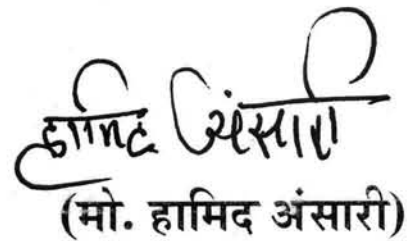 हामिद अंसारी
(मो. हामिद अंसारी)